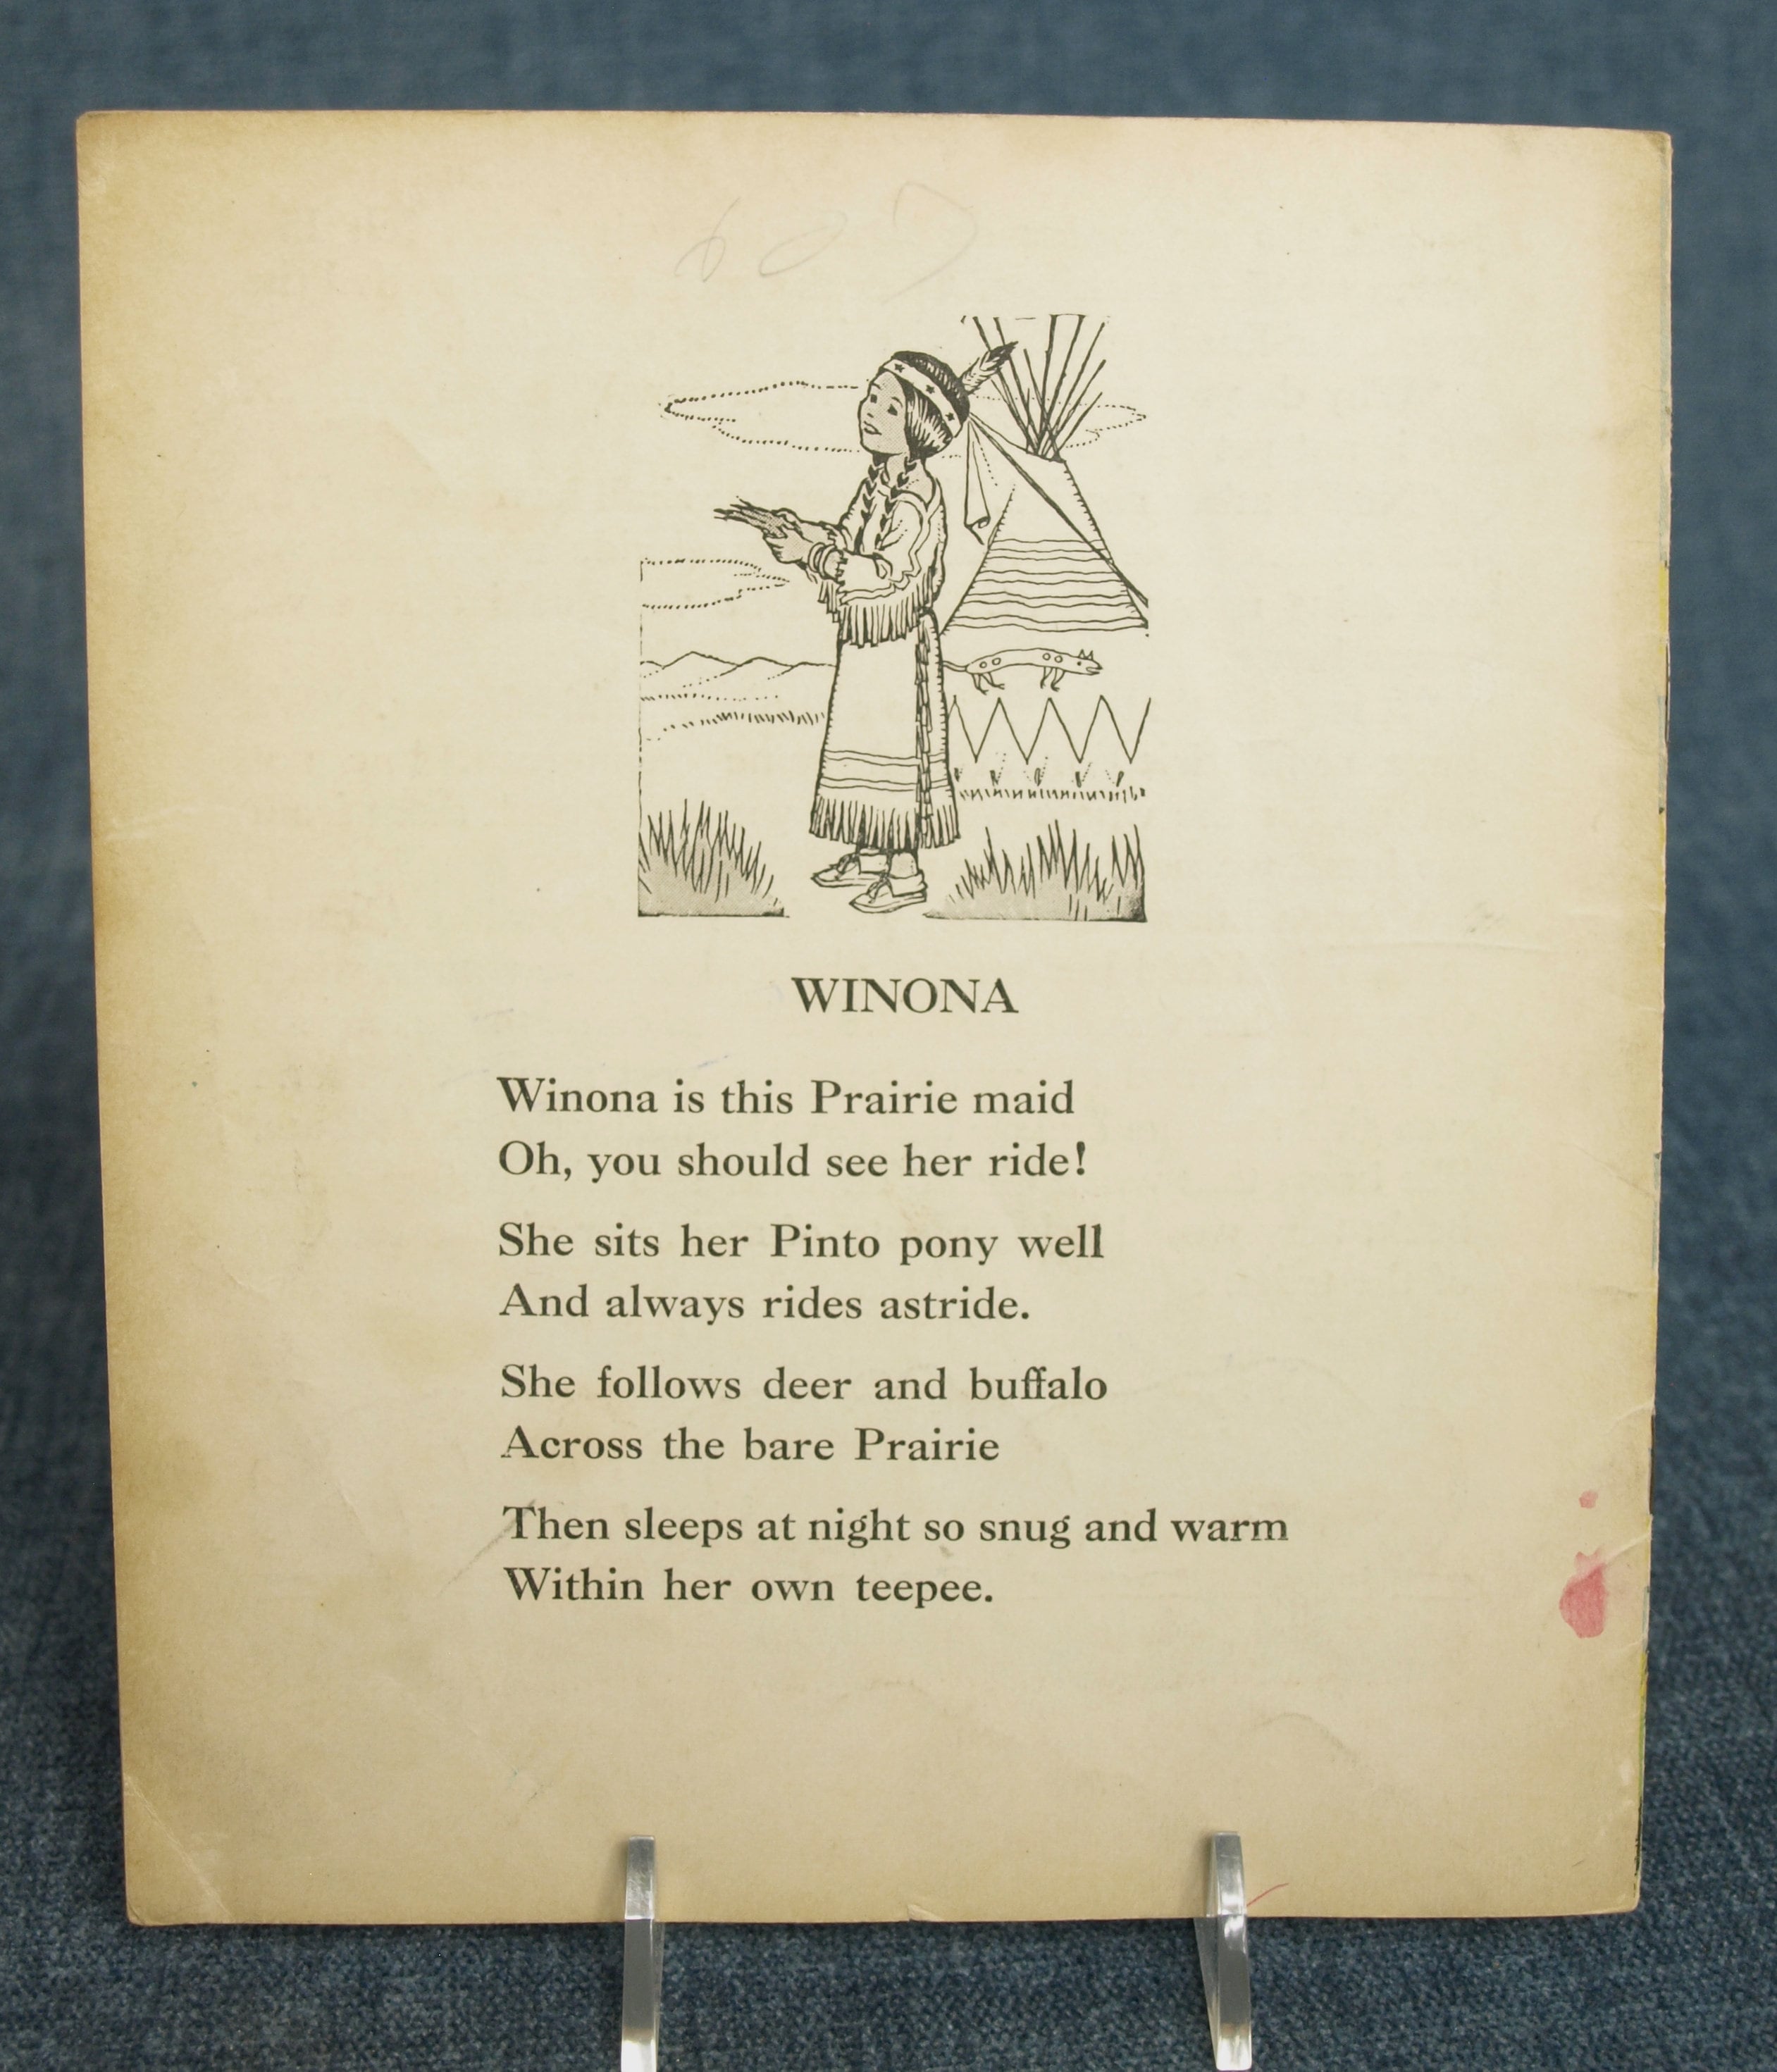 WINONA
Winona is this Prairie maid
Oh, you should see her ride!
She sits her Pinto pony well
And always rides astride.
She follows deer and buffalo
Across the bare Prairie
Then sleeps at night so snug and warm
Within her own teepee.